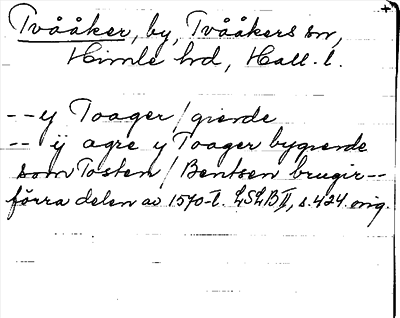 Tvååker, by, Tvååkers sn,
Himle hd, Hall. l.
-- y Toager / gierde
-- ÿ agre y Toager bygierde
som Tosten / Bentsen brugir --
förra delen av 1570-t. LSLB II, s. 424. orig.